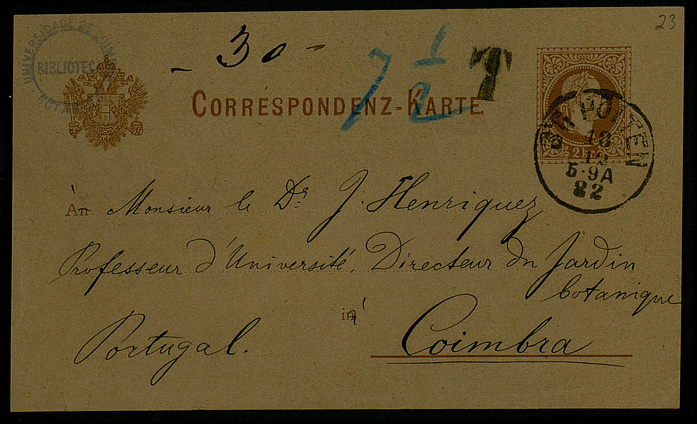 23
UNIVERSIDADE DE COIMBRA
BIBLIOTECA
- 30 -
7 1/2
T
CORRESPONDENZ-KARTE
2 KR
ST. PÖLTEN
18
12
5·9A
82
An à Monsieur le Dr J. Henriquez
Professeur d'Université, Directeur du Jardin
botanique
in à
Portugal. Coimbra